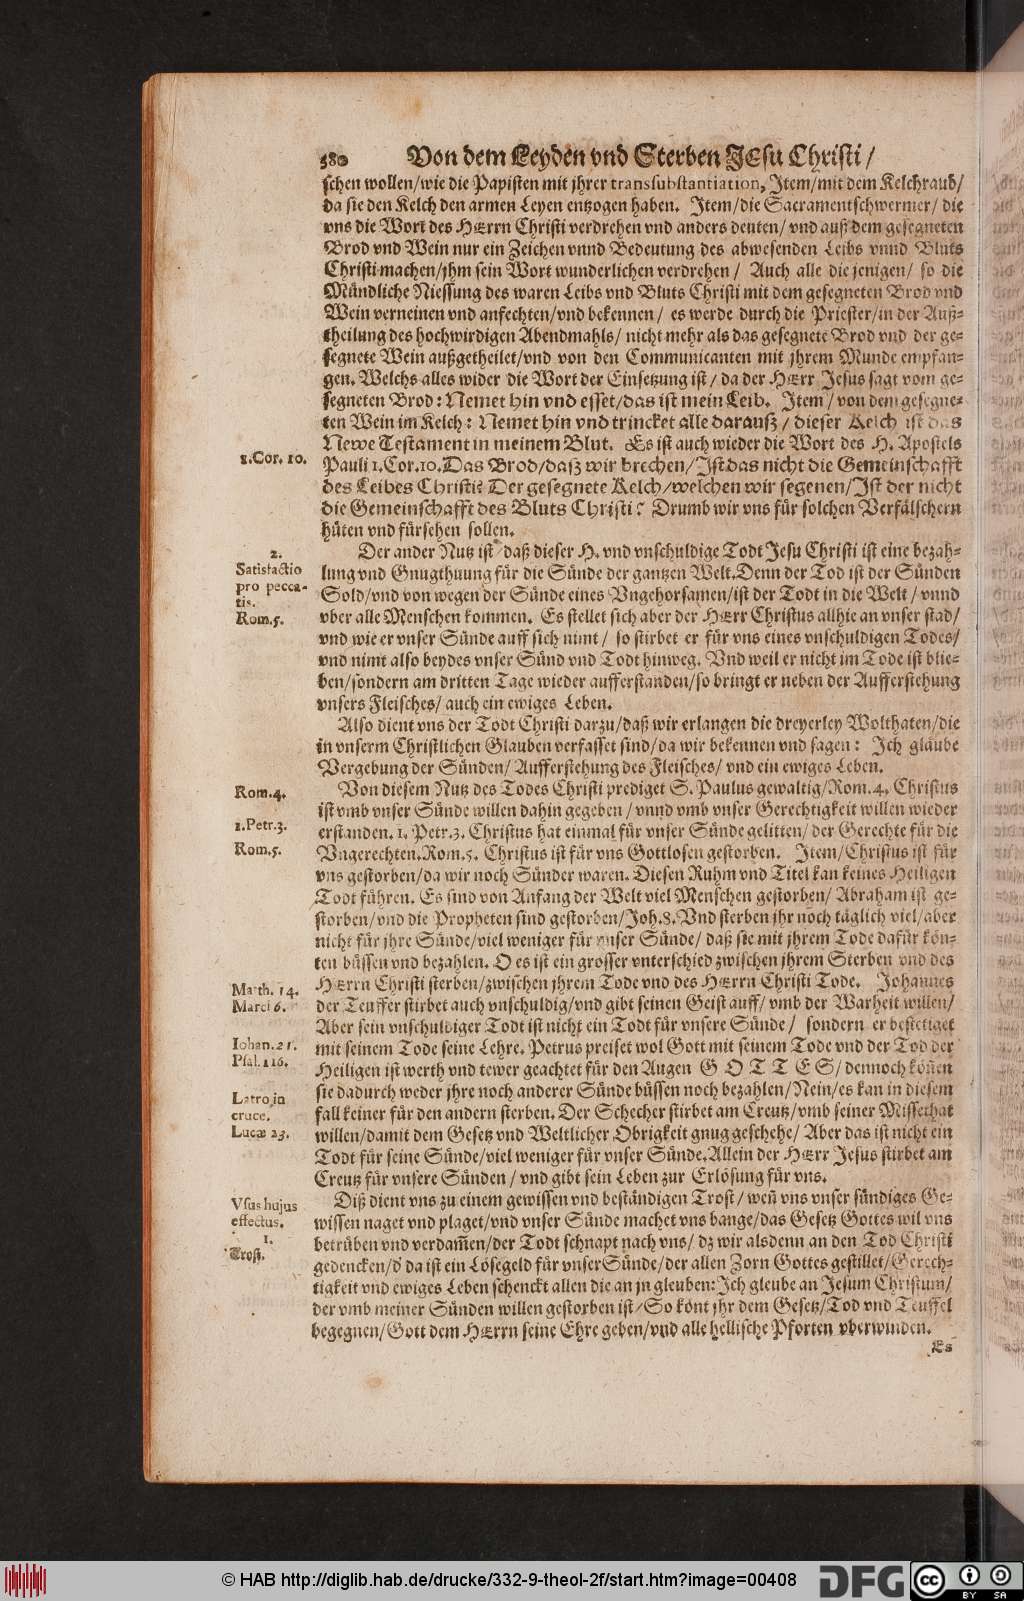 380 Von dem Leyden vnd Sterben JEsu Christi /
schen wollen/wie die Papisten mit jhrer transsubstantiation, Jtem/mit dem Kelchraub/
da sie den Kelch den armen Leyen entzogen haben. Jtem/die Sacramentschwermer/ die
vns die Wort des HErrn Christi verdrehen vnd anders deuten/ vnd auß dem gesegneten
Brod vnd Wein nur ein Zeichen vnnd Bedeutung des abwesenden Leibs vnnd Bluts
Christi machen/jhm sein Wort wunderlichen verdrehen / Auch alle die jenigen/ so die
Mündliche Niessung des waren Leibs vnd Bluts Christi mit dem gesegneten Brod vnd
Wein verneinen vnd anfechten/vnd bekennen / es werde durch die Priester/in der Auß-
theilung des hochwirdigen Abendmahls/ nicht mehr als das gesegnete Brod vnd der ge-
segnete Wein außgetheilet/vnd von den Communicanten mit jhrem Munde empfan-
gen. Welchs alles wider die Wort der Einsetzung ist / da der HErr Jesus sagt vom ge-
segneten Brod: Nemet hin vnd esset/das ist mein Leib. Jtem / von dem gesegne-
ten Wein im Kelch: Nemet hin vnd trincket alle darauß / dieser Kelch ist das
Newe Testament in meinem Blut. Es ist auch wieder die Wort des H. Apostels
1.Cor. 10. Pauli 1.Cor.10. Das Brod/daß wir brechen/Jst das nicht die Gemeinschafft
des Leibes Christi? Der gesegnete Kelch/welchen wir segenen/Jst der nicht
die Gemeinschafft des Bluts Christi? Drumb wir vns für solchen Verfälschern
hüten vnd fürsehen sollen.
2. Der ander Nutz ist/daß dieser H. vnd vnschuldige Todt Jesu Christi ist eine bezah-
Satisfactio lung vnd Gnugthuung für die Sünde der gantzen Welt. Denn der Tod ist der Sünden
pro pecca- Sold/vnd von wegen der Sünde eines Vngehorsamen/ist der Todt in die Welt / vnnd
tis.
Rom.5. vber alle Menschen kommen. Es stellet sich aber der HErr Christus allhie an vnser stad/
vnd wie er vnser Sünde auff sich nimt / so stirbet er für vns eines vnschuldigen Todes/
vnd nimt also beydes vnser Sünd vnd Todt hinweg. Vnd weil er nicht im Tode ist blie-
ben/sondern am dritten Tage wieder aufferstanden/so bringt er neben der Aufferstehung
vnsers Fleisches/ auch ein ewiges Leben.
Also dient vns der Todt Christi darzu/daß wir erlangen die dreyerley Wolthaten/die
in vnserm Christlichen Glauben verfasset sind/da wir bekennen vnd sagen: Jch gläube
Vergebung der Sünden/ Aufferstehung des Fleisches/ vnd ein ewiges Leben.
Rom.4. Von diesem Nutz des Todes Christi prediget S. Paulus gewaltig/Rom.4. Christus
ist vmb vnser Sünde willen dahin gegeben / vnnd vmb vnser Gerechtigkeit willen wieder
1.Petr.3. erstanden. 1. Petr.3. Christus hat einmal für vnser Sünde gelitten/ der Gerechte für die
Rom.5. Vngerechten. Rom.5. Christus ist für vns Gottlosen gestorben. Jtem/Christus ist für
vns gestorben/da wir noch Sünder waren. Diesen Ruhm vnd Titel kan keines Heiligen
Todt führen. Es sind von Anfang der Welt viel Menschen gestorben/ Abraham ist ge-
storben/vnd die Propheten sind gestorben/Joh.8. Vnd sterben jhr noch täglich viel/aber
nicht für jhre Sünde/viel weniger für vnser Sünde/ daß sie mit jhrem Tode dafür kön-
ten büssen vnd bezahlen. O es ist ein grosser vnterschied zwischen jhrem Sterben vnd des
Matth. 14. HErrn Christi sterben/zwischen jhrem Tode vnd des HErrn Christi Tode. Johannes
Marci 6. der Teuffer stirbet auch vnschuldig/vnd gibt seinen Geist auff/ vmb der Warheit willen/
Aber sein vnschuldiger Todt ist nicht ein Todt für vnsere Sünde / sondern er bestetiget
Iohan.21. mit seinem Tode seine Lehre. Petrus preiset wol Gott mit seinem Tode vnd der Tod der
Psal.116. Heiligen ist werth vnd tewer geachtet für den Augen GOTTES/ dennoch köñen
sie dadurch weder jhre noch anderer Sünde büssen noch bezahlen/Nein/es kan in diesem
Latro in fall keiner für den andern sterben. Der Schecher stirbet am Creutz/vmb seiner Missethat
cruce.
Lucæ 23. willen/damit dem Gesetz vnd Weltlicher Obrigkeit gnug geschehe/ Aber das ist nicht ein
Todt für seine Sünde/viel weniger für vnser Sünde. Allein der HErr Jesus stirbet am
Creutz für vnsere Sünden / vnd gibt sein Leben zur Erlösung für vns.
Vsus hujus Diß dient vns zu einem gewissen vnd beständigen Trost / weñ vns vnser sündiges Ge-
effectus. wissen naget vnd plaget/vnd vnser Sünde machet vns bange/das Gesetz Gottes wil vns
1. betrüben vnd verdam̃en/der Todt schnapt nach vns/ dz wir alsdenn an den Tod Christi
Trost. gedencken/d' da ist ein Lösegeld für vnser Sünde/der allen Zorn Gottes gestillet/Gerech-
tigkeit vnd ewiges Leben schenckt allen die an jn gleuben: Jch gleube an Jesum Christum/
der vmb meiner Sünden willen gestorben ist/ So könt jhr dem Gesetz/Tod vnd Teuffel
begegnen/Gott dem HErrn seine Ehre geben/vnd alle hellische Pforten vberwinden.
Es
© HAB http://diglib.hab.de/drucke/332-9-theol-2f/start.htm?image=00408
DFG
cc BY SA